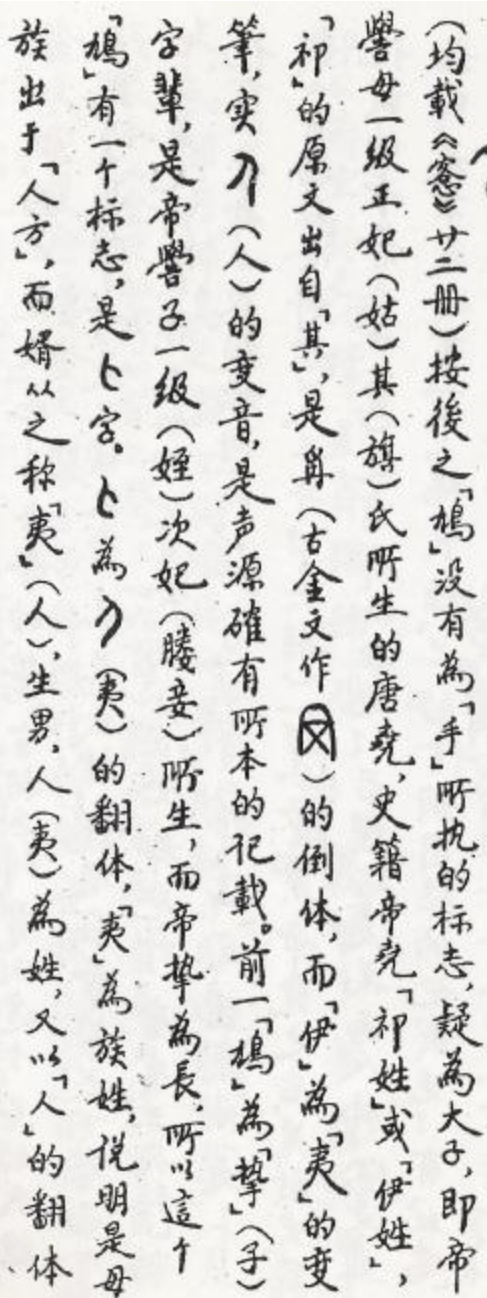 （均載《愙》廿二册）按後之「鳩」没有為「手」所执的标志，疑為大子，即帝
嚳母一级正妃（姑）其（旗）氏所生的唐堯，史籍帝堯「祁姓」或「伊姓」，
「祁」的原文出自「其」，是（古金文作 ）的倒体，而「伊」為「夷」的变
筆，实 （人）的变音，是声源確有所本的记載。前一「鳩」為「挚」（子）
字輩，是帝嚳子一级（姪）次妃（媵妾）所生，而帝挚為長，所以這个
「鳩」有一个标志，是 字。 為 （夷）的翻体，「夷」為族姓，说明是母
族出于「人方」，而婿从之称「夷」（人），生男，人（夷）為姓，又以「人」的翻体